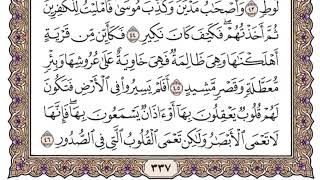 لُوطٍ ٤٣ وَأَصْحَٰبُ مَدْيَنَ وَكُذِّبَ مُوسَىٰ فَأَمْلَيْتُ لِلْكَٰفِرِينَ
ثُمَّ أَخَذْتُهُمْ فَكَيْفَ كَانَ نَكِيرِ ٤٤ فَكَأَيِّن مِّن قَرْيَةٍ
أَهْلَكْنَٰهَا وَهِىَ ظَالِمَةٌ فَهِىَ خَاوِيَةٌ عَلَىٰ عُرُوشِهَا وَبِئْرٍ
مُّعَطَّلَةٍ وَقَصْرٍ مَّشِيدٍ ٤٥ أَفَلَمْ يَسِيرُوا۟ فِى ٱلْأَرْضِ فَتَكُونَ
لَهُمْ قُلُوبٌ يَعْقِلُونَ بِهَآ أَوْ ءَاذَانٌ يَسْمَعُونَ بِهَا فَإِنَّهَا
لَا تَعْمَى ٱلْأَبْصَٰرُ وَلَٰكِن تَعْمَى ٱلْقُلُوبُ ٱلَّتِى فِى ٱلصُّدُورِ ٤٦
٣٣٧